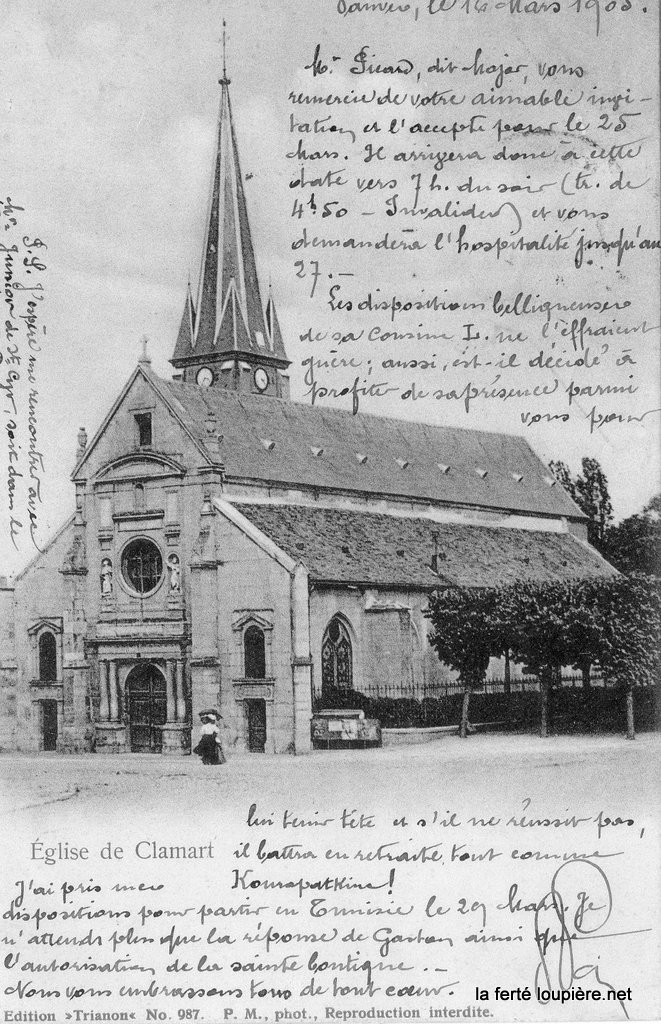 le 16 Mars 1905.
Mr Picard, dit Major, vous
remercie de votre aimable invi-
tation et l'accepte pour le 25
Mars. Il arrivera donc à cette
date vers 7 h. du soir (tr. de
4h50 - Invalides) et vous
demandera l'hospitalité jusqu'au
27. -
Les dispositions belliqueuses
de sa cousine L. ne l'effraient
guère; aussi, est-il décidé à
profiter de sa présence parmi
vous pour
lui tenir tête et s'il ne réussit pas,
il battra en retraite, tout comme
Kouropatkine!
P.S. J'espère me rencontrer avec
Mr Junior de St Cyr, soit dans le
Église de Clamart
J'ai pris mes
dispositions pour partir en Tunisie le 29 Mars. Je
n'attends plus que la réponse de Gaston ainsi que
l'autorisation de la sainte boutique. -
Nous vous embrassons tous de tout cœur.
la ferté loupière.net
Edition »Trianon« No. 987. P. M., phot., Reproduction interdite.